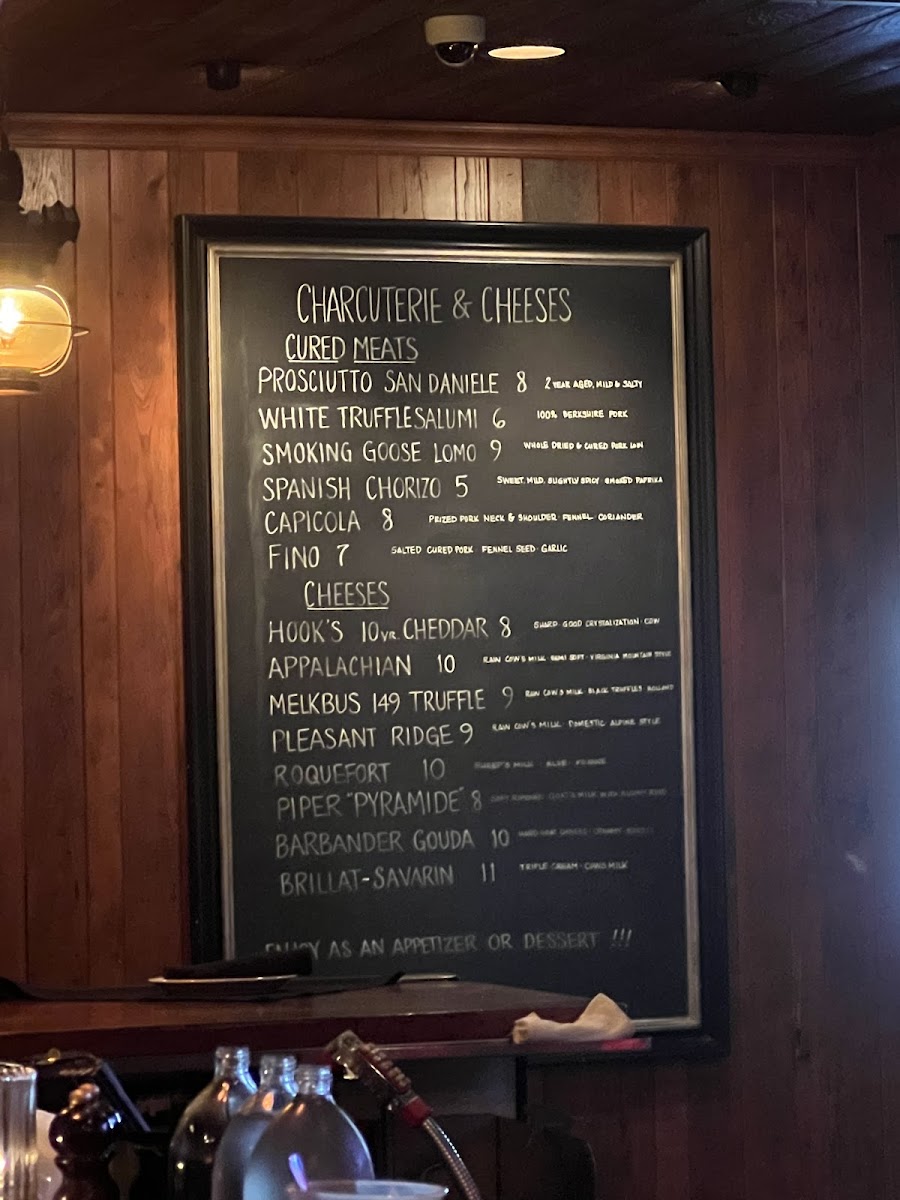 CHARCUTERIE & CHEESES
CURED MEATS
PROSCIUTTO SAN DANIELE 8 2 YEAR AGED, MILD & SALTY
WHITE TRUFFLE SALUMI 6 100% BERKSHIRE PORK
SMOKING GOOSE LOMO 9 WHOLE DRIED & CURED PORK LOIN
SPANISH CHORIZO 5 SWEET, MILD, SLIGHTLY SPICY SMOKED PAPRIKA
CAPICOLA 8 PRIZED PORK NECK & SHOULDER · FENNEL · CORIANDER
FINO 7 SALTED CURED PORK · FENNEL SEED · GARLIC
CHEESES
HOOK'S 10 YR. CHEDDAR 8 SHARP · GOOD CRYSTALIZATION · COW
APPALACHIAN 10 RAW COW'S MILK · SEMI SOFT · VIRGINIA MOUNTAIN STYLE
MELKBUS 149 TRUFFLE 9 RAW COW'S MILK · BLACK TRUFFLES · HOLLAND
PLEASANT RIDGE 9 RAW COW'S MILK · DOMESTIC ALPINE STYLE
ROQUEFORT 10 SHEEP'S MILK · BLUE
PIPER "PYRAMIDE" 8
BARBANDER GOUDA 10
BRILLAT-SAVARIN 11 TRIPLE CREAM · COW'S MILK
ENJOY AS AN APPETIZER OR DESSERT !!!